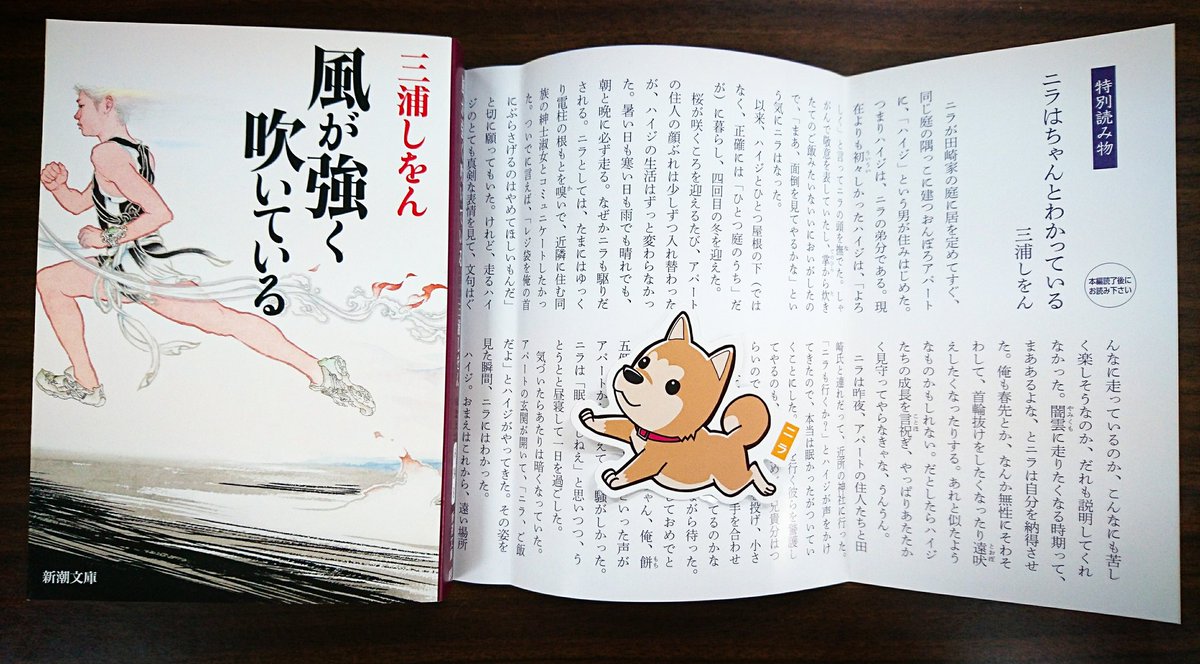 三浦しをん
風が強く
吹いている
新潮文庫
特別読み物
ニラはちゃんとわかっている
三浦しをん
本編読了後に
お読み下さい
ニラが田崎家の庭に居を定めてすぐ、
同じ庭の隅っこに建つおんぼろアパート
に、「ハイジ」という男が住みはじめた。
つまりハイジは、ニラの弟分である。現
在よりも初々しかったハイジは、「よろ
しくな」と言ってニラの頭を撫でた。しゃ
がんで敬意を表していたし、掌から炊き
たてのご飯みたいないいにおいがしたの
で、「まあ、面倒を見てやるかな」とい
う気にニラはなった。
以来、ハイジとひとつ屋根の下（では
なく、正確には「ひとつ庭のうち」だ
が）に暮らし、四回目の冬を迎えた。
桜が咲くころを迎えるたび、アパート
の住人の顔ぶれは少しずつ入れ替わった
が、ハイジの生活はずっと変わらなかっ
た。暑い日も寒い日も雨でも晴れでも、
朝と晩に必ず走る。なぜかニラも駆りだ
される。ニラとしては、たまにはゆっく
り電柱の根もとを嗅いで、近隣に住む同
族の紳士淑女とコミュニケートしたかっ
た。ついでに言えば、「レジ袋を俺の首
にぶらさげるのはやめてほしいもんだ」
と切に願ってもいた。けれど、走るハイ
ジのとても真剣な表情を見て、文句はぐ
んなに走っているのか、こんなにも苦し
く楽しそうなのか、だれも説明してくれ
なかった。闇雲に走りたくなる時期って、
まああるよな、とニラは自分を納得させ
た。俺も春先とか、なんか無性にそわそ
わして、首輪抜けをしたくなったり遠吠
えしたくなったりする。あれと似たよう
なものかもしれない。だとしたらハイジ
たちの成長を言祝ぎ、やっぱりあたたか
く見守ってやらなきゃな、うんうん。
ニラは昨夜、アパートの住人たちと田
崎氏と連れだって、近所の神社に行った。
「ニラも行くか？」とハイジが声をかけ
てきたので、本当は眠かったがついてい
くことにした。
てやるのも、
らいので
手を合わせ
投げ、小さ
ながら待った。
アパートが
騒がしかった。
ニラは「眠
しねえ」と思いつつ、う
とうとと昼寝して一日を過ごした。
気づいたらあたりは暗くなっていた。
アパートの玄関が開いて、「ニラ、ご飯
だよ」とハイジがやってきた。その姿を
見た瞬間、ニラにはわかった。
ハイジ。おまえはこれから、遠い場所
ニラ